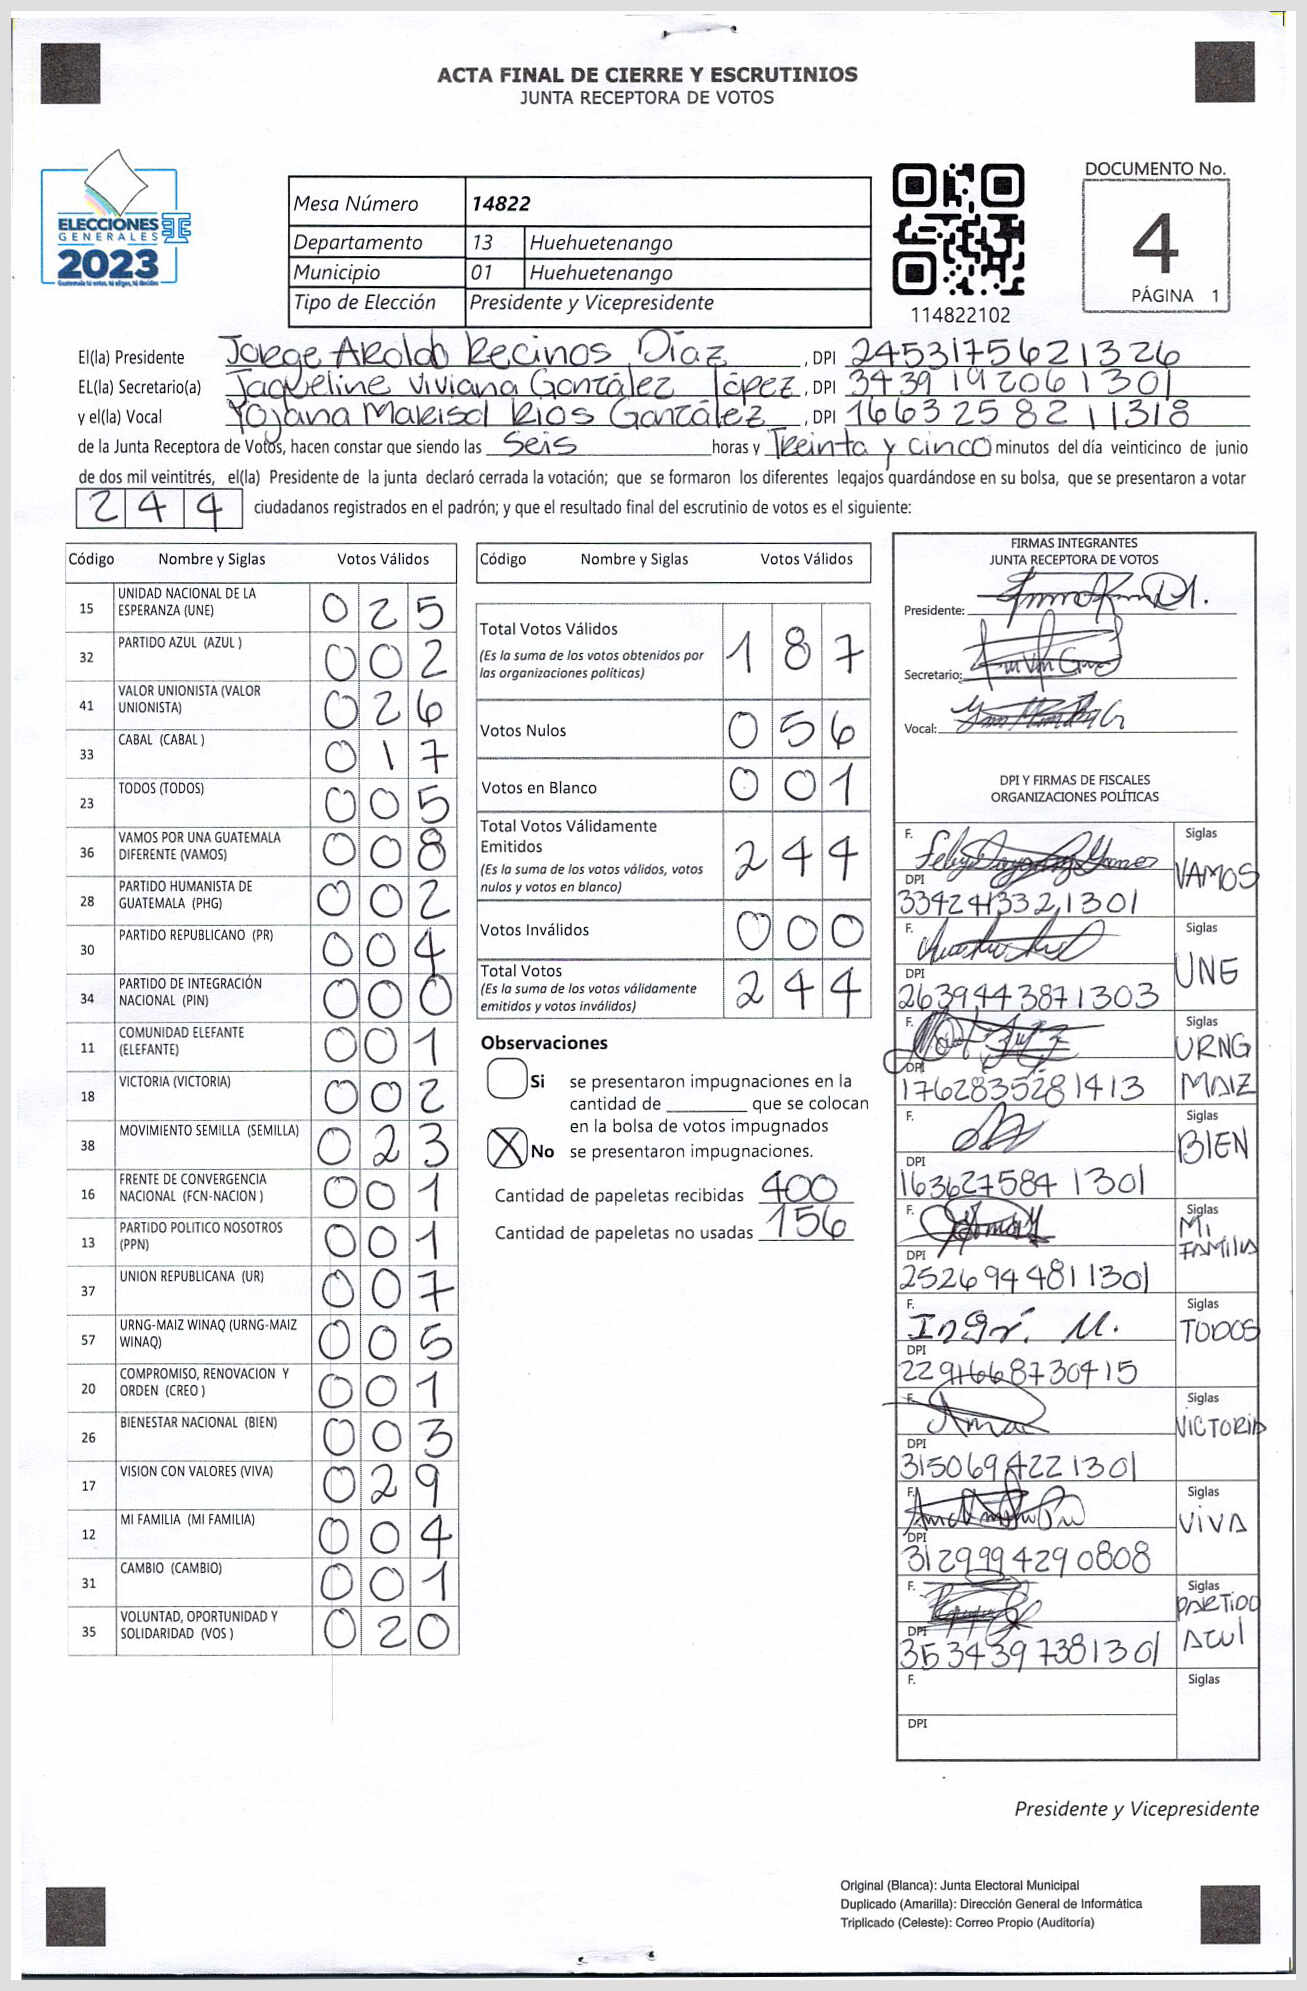 ACTA FINAL DE CIERRE Y ESCRUTINIOS
JUNTA RECEPTORA DE VOTOS
ELECCIONES
GENERALES
2023
Guatemala tú votas, tú eliges, tú decides
Mesa Número 14822
Departamento 13 Huehuetenango
Municipio 01 Huehuetenango
Tipo de Elección Presidente y Vicepresidente
114822102
DOCUMENTO No.
4
PÁGINA 1
El(la) Presidente Jorge Aroldo Recinos Díaz, DPI 2453175621326
EL(la) Secretario(a) Jaqueline Viviana González López, DPI 3439192061301
y el(la) Vocal Yojana Marisol Rios González, DPI 1663258211318
de la Junta Receptora de Votos, hacen constar que siendo las Seis horas y Treinta y cinco minutos del día veinticinco de junio
de dos mil veintitrés, el(la) Presidente de la junta declaró cerrada la votación; que se formaron los diferentes legajos guardándose en su bolsa, que se presentaron a votar
244 ciudadanos registrados en el padrón; y que el resultado final del escrutinio de votos es el siguiente:
Código Nombre y Siglas Votos Válidos
15 UNIDAD NACIONAL DE LA ESPERANZA (UNE) 025
32 PARTIDO AZUL (AZUL ) 002
41 VALOR UNIONISTA (VALOR UNIONISTA) 026
33 CABAL (CABAL ) 017
23 TODOS (TODOS) 005
36 VAMOS POR UNA GUATEMALA DIFERENTE (VAMOS) 008
28 PARTIDO HUMANISTA DE GUATEMALA (PHG) 002
30 PARTIDO REPUBLICANO (PR) 004
34 PARTIDO DE INTEGRACIÓN NACIONAL (PIN) 000
11 COMUNIDAD ELEFANTE (ELEFANTE) 001
18 VICTORIA (VICTORIA) 002
38 MOVIMIENTO SEMILLA (SEMILLA) 023
16 FRENTE DE CONVERGENCIA NACIONAL (FCN-NACION ) 001
13 PARTIDO POLITICO NOSOTROS (PPN) 001
37 UNION REPUBLICANA (UR) 007
57 URNG-MAIZ WINAQ (URNG-MAIZ WINAQ) 005
20 COMPROMISO, RENOVACION Y ORDEN (CREO ) 001
26 BIENESTAR NACIONAL (BIEN) 003
17 VISION CON VALORES (VIVA) 029
12 MI FAMILIA (MI FAMILIA) 004
31 CAMBIO (CAMBIO) 001
35 VOLUNTAD, OPORTUNIDAD Y SOLIDARIDAD (VOS ) 020
Código Nombre y Siglas Votos Válidos
Total Votos Válidos 187
(Es la suma de los votos obtenidos por
las organizaciones políticas)
Votos Nulos 056
Votos en Blanco 001
Total Votos Válidamente
Emitidos 244
(Es la suma de los votos válidos, votos
nulos y votos en blanco)
Votos Inválidos 000
Total Votos 244
(Es la suma de los votos válidamente
emitidos y votos inválidos)
Observaciones
Si se presentaron impugnaciones en la
cantidad de ________ que se colocan
en la bolsa de votos impugnados
X No se presentaron impugnaciones.
Cantidad de papeletas recibidas 400
Cantidad de papeletas no usadas 156
FIRMAS INTEGRANTES
JUNTA RECEPTORA DE VOTOS
Presidente:
Secretario:
Vocal:
DPI Y FIRMAS DE FISCALES
ORGANIZACIONES POLÍTICAS
F. Siglas
VAMOS
DPI
3342413321301
F. Siglas
UNE
DPI
2639443871303
F. Siglas
URNG
DPI
1762835281413 MAIZ
F. Siglas
BIEN
DPI
1636275841301
F. Siglas
MI
FAMILIA
DPI
2526944811301
F. Siglas
TODOS
DPI
2291668730415
F. Siglas
VICTORIA
DPI
3150694221301
F. Siglas
VIVA
DPI
3129994290808
F. Siglas
PARTIDO
AZUL
DPI
3534397381301
F. Siglas
DPI
Presidente y Vicepresidente
Original (Blanca): Junta Electoral Municipal
Duplicado (Amarilla): Dirección General de Informática
Triplicado (Celeste): Correo Propio (Auditoría)